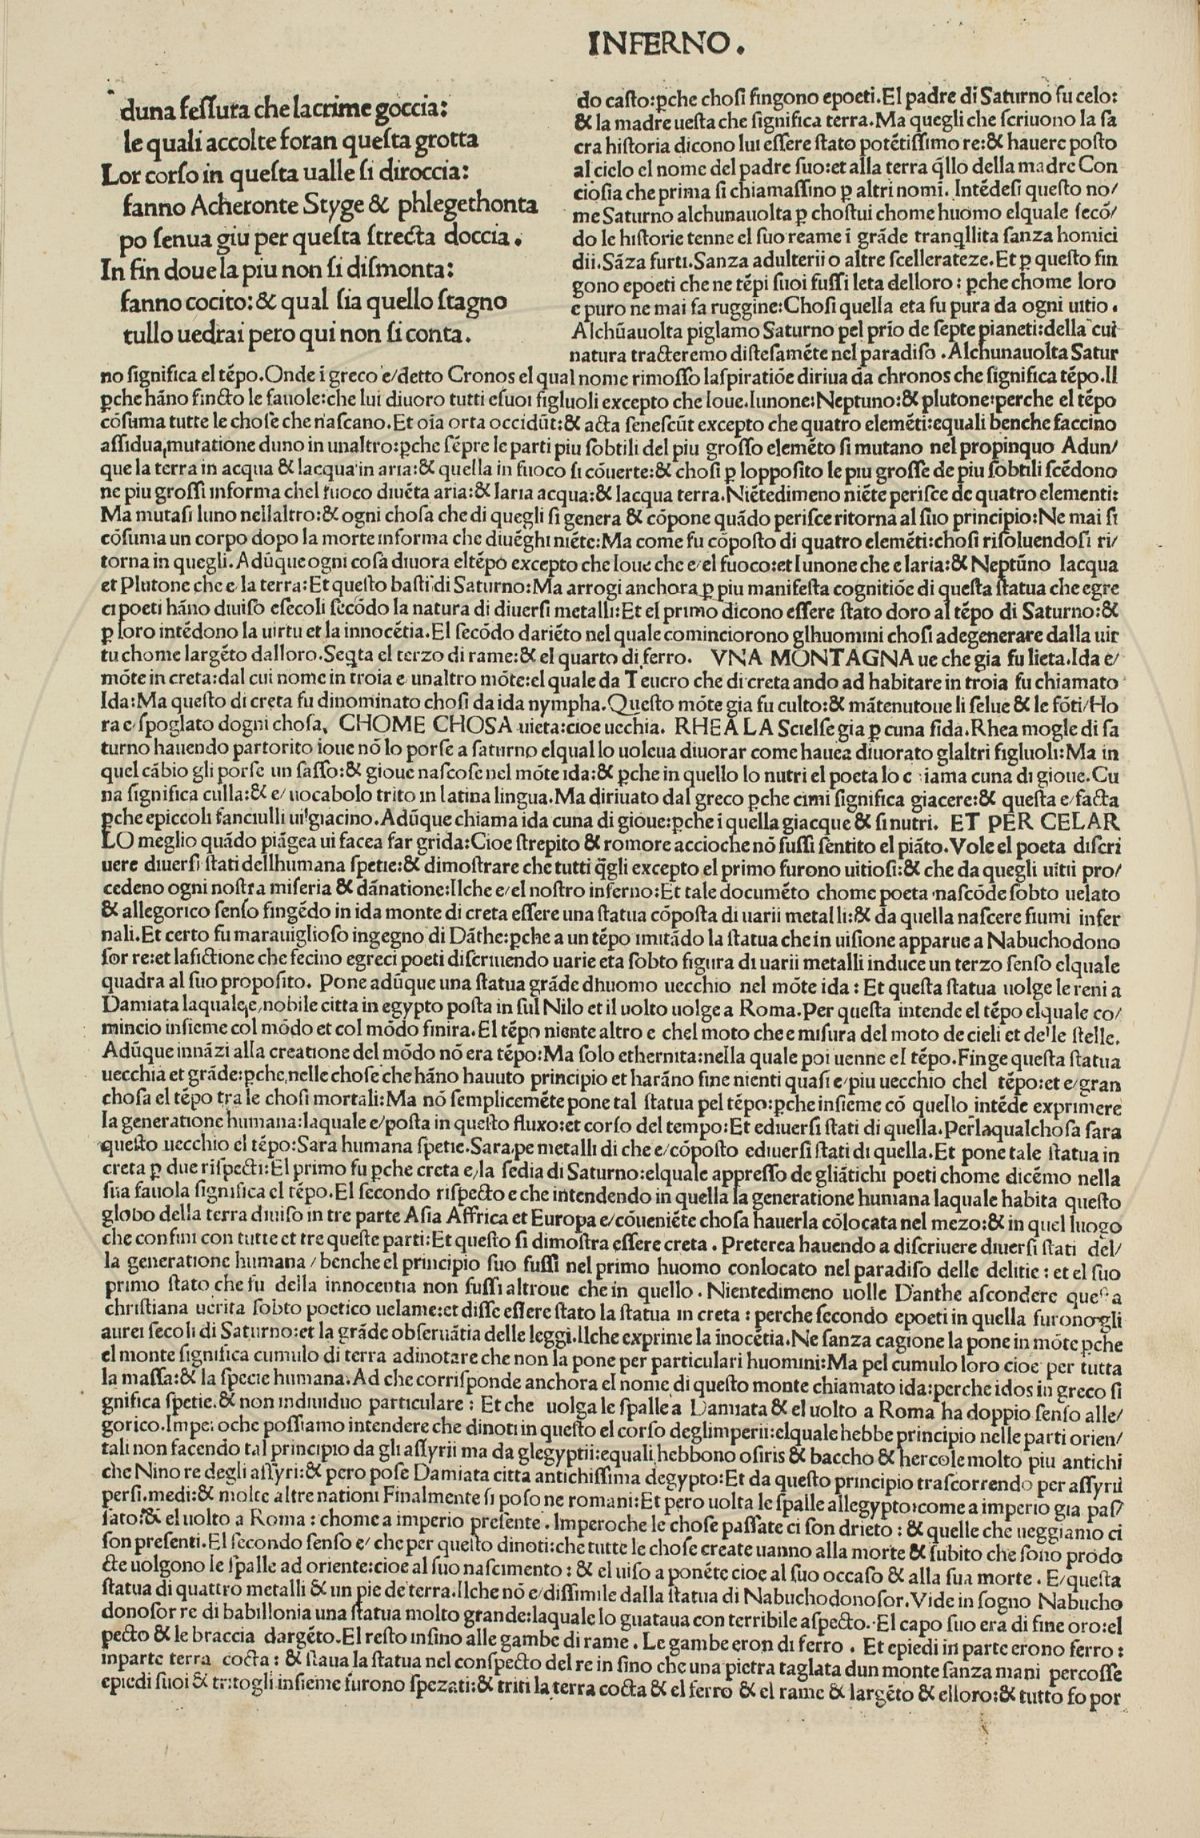 INFERNO.
duna fessura che lacrime goccia:
le quali accolte foran questa grotta
Lor corso in questa ualle si diroccia:
fanno Acheronte Styge & phlegethonta
po senua giu per questa strecta doccia.
In fin doue la piu non si dismonta:
fanno cocito: & qual sia quello stagno
tullo uedrai pero qui non si conta.
do casto: ꝑche chosi fingono epoeti. El padre di Saturno fu celo:
& la madre uesta che significa terra. Ma quegli che scriuono la sa
cra historia dicono lui essere stato potētissimo re: & hauere posto
al cielo el nome del padre suo: et alla terra q̄llo della madre Con
ciosia che prima si chiamassino ꝑ altri nomī. Intēdesi questo no/
me Saturno alchunauolta ꝑ chostui chome huomo elquale secō/
do le historie tenne el suo reame ī grāde tranq̄llita sanza homici
dii. Sāza furti. Sanza adulterii o altre scellerateze. Et ꝑ questo fin
gono epoeti che ne tēpi suoi fussi leta delloro: ꝑche chome loro
e puro ne mai fa ruggine: Chosi quella eta fu pura da ogni uitio.
Alchūauolta piglamo Saturno pel prīo de septe pianeti: della cui
natura tracteremo distesamēte nel paradiso. Alchunauolta Satur
no significa el tēpo. Onde ī greco e/detto Cronos el qual nome rimosso laspiratiōe diriua da chronos che significa tēpo. Il
ꝑche hāno fincto le fauole: che lui diuoro tutti esuoi figluoli excepto che Ioue. Iunone: Neptuno: & plutone: perche el tēpo
cōsuma tutte le chose che nascano. Et oīa orta occidūt: & acta senescūt excepto che quatro elemēti: equali benche faccino
assidua mutatione duno in unaltro: ꝑche sēpre le parti piu sobtili del piu grosso elemēto si mutano nel propinquo Adun/
que la terra in acqua & lacqua in aria: & quella in fuoco si cōuerte: & chosi ꝑ lopposito le piu grosse de piu sobtili scēdono
ne piu grossi informa chel fuoco diuēta aria: & laria acqua: & lacqua terra. Niētedimeno niēte perisce de quatro elementi:
Ma mutasi luno nellaltro: & ogni chosa che di quegli si genera & cōpone quādo perisce ritorna al suo principio: Ne mai si
cōsuma un corpo dopo la morte informa che diuēghi niēte: Ma come fu cōposto di quatro elemēti: chosi risoluendosi ri/
torna in quegli. Adūque ogni cosa diuora eltēpo excepto che Ioue che e/el fuoco: et Iunone che e laria: & Neptūno lacqua
et Plutone che e la terra: Et questo basti di Saturno: Ma arrogi anchora ꝑ piu manifesta cognitiōe di questa statua che egre
ci poeti hāno diuiso esecoli secōdo la natura di diuersi metalli: Et el primo dicono essere stato doro al tēpo di Saturno: &
ꝑ loro intēdono la uirtu et la innocētia. El secōdo dariēto nel quale cominciorono glhuomini chosi adegenerare dalla uir
tu chome largēto dalloro. Seq̄ta el terzo di rame: & el quarto di ferro. VNA MONTAGNA ue che gia fu lieta. Ida e/
mōte in creta: dal cui nome in troia e unaltro mōte: el quale da Teucro che di creta ando ad habitare in troia fu chiamato
Ida: Ma questo di creta fu dinominato chosi da ida nympha. Questo mōte gia fu culto: & mātenutoue li selue & le fōti/Ho
ra e spoglato dogni chosa. CHOME CHOSA uieta: cioe uecchia. RHEA LA Scielse gia ꝑ cuna fida. Rhea mogle di sa
turno hauendo partorito ioue nō lo porse a saturno elqual lo uoleua diuorar come hauea diuorato glaltri figluoli: Ma in
quel cābio gli porse un sasso: & gioue nascose nel mōte ida: & ꝑche in quello lo nutri el poeta lo c iama cuna di gioue. Cu
na significa culla: & e/uocabolo trito in latina lingua. Ma diriuato dal greco ꝑche cimi significa giacere: & questa e/facta
ꝑche epiccoli fanciulli ui giacino. Adūque chiama ida cuna di gioue: ꝑche ī quella giacque & si nutri. ET PER CELAR
LO meglio quādo piāgea ui facea far grida: Cioe strepito & romore accioche nō fussi sentito el piāto. Vole el poeta discri
uere diuersi stati dellhumana spetie: & dimostrare che tutti q̄gli excepto el primo furono uitiosi: & che da quegli uitii pro/
cedeno ogni nostra miseria & dānatione: Ilche e/el nostro inferno: Et tale documēto chome poeta nascōde sobto uelato
& allegorico senso fingēdo in ida monte di creta essere una statua cōposta di uarii metalli: & da quella nascere fiumi infer
nali. Et certo fu marauiglioso ingegno di Dāthe: ꝑche a un tēpo imitādo la statua che in uisione apparue a Nabuchodono
sor re: et lafictione che fecino egreci poeti discriuendo uarie eta sobto figura di uarii metalli induce un terzo senso elquale
quadra al suo proposito. Pone adūque una statua grāde dhuomo uecchio nel mōte ida: Et questa statua uolge le reni a
Damiata laquale e nobile citta in egypto posta in sul Nilo et il uolto uolge a Roma. Per questa intende el tēpo elquale co/
mincio insieme col mōdo et col mōdo finira. El tēpo niente altro e chel moto che e misura del moto de cieli et delle stelle.
Adūque innāzi alla creatione del mōdo nō era tēpo: Ma solo ethernita: nella quale poi uenne el tēpo. Finge questa statua
uecchia et grāde: ꝑche nelle chose che hāno hauuto principio et harāno fine nienti quasi e/piu uecchio chel tēpo: et e/gran
chosa el tēpo tra le chosi mortali: Ma nō semplicemēte pone tal statua pel tēpo: ꝑche insieme cō quello intēde exprimere
la generatione humana: laquale e/posta in questo fluxo: et corso del tempo: Et ediuersi stati di quella. Perlaqualchosa sara
questo uecchio el tēpo: Sara humana spetie. Sara pe metalli di che e/cōposto ediuersi stati di quella. Et pone tale statua in
creta ꝑ due rispecti: El primo fu ꝑche creta e/la sedia di Saturno: elquale appresso de gliātichi poeti chome dicēmo nella
sua fauola significa el tēpo. El secondo rispecto e che intendendo in quella la generatione humana laquale habita questo
globo della terra diuiso in tre parte Asia Affrica et Europa e/cōueniēte chosa hauerla cōlocata nel mezo: & in quel luogo
che confini con tutte et tre queste parti: Et questo si dimostra essere creta. Preterea hauendo a discriuere diuersi stati del/
la generatione humana/benche el principio suo fussi nel primo huomo conlocato nel paradiso delle delitie: et el suo
primo stato che fu della innocentia non fussi altroue che in quello. Nientedimeno uolle Danthe ascondere questa
christiana uerita sobto poetico uelame: et disse essere stato la statua in creta: perche secondo epoeti in quella furono gli
aurei secoli di Saturno: et la grāde obseruātia delle leggi. Ilche exprime la inocētia. Ne sanza cagione la pone in mōte ꝑche
el monte significa cumulo di terra adinotare che non la pone per particulari huomini: Ma pel cumulo loro cioe per tutta
la massa: & la specie humana. Ad che corrisponde anchora el nome di questo monte chiamato ida: perche idos in greco si
gnifica spetie. & non indiuiduo particulare: Et che uolga le spalle a Damiata & el uolto a Roma ha doppio senso alle/
gorico. Imperoche possiamo intendere che dinoti in questo el corso deglimperii: elquale hebbe principio nelle parti orien/
tali non facendo tal principio da gli assyrii ma da glegyptii: equali hebbono osiris & baccho & hercole molto piu antichi
che Nino re degli assyri: & pero pose Damiata citta antichissima degypto: Et da questo principio trascorrendo per assyrii
persi. medi: & molte altre nationi Finalmente si poso ne romani: Et pero uolta le spalle allegypto: come a imperio gia pas/
sato: & el uolto a Roma: chome a imperio presente. Imperoche le chose passate ci son drieto: & quelle che ueggiamo ci
son presenti. El secondo senso e/che per questo dinoti: che tutte le chose create uanno alla morte & subito che sono prodo
cte uolgono le spalle ad oriente: cioe al suo nascimento: & el uiso a ponēte cioe al suo occaso & alla sua morte. E/questa
statua di quattro metalli & un pie de terra. Ilche nō e/dissimile dalla statua di Nabuchodonosor. Vide in sogno Nabucho
donosor re di babillonia una statua molto grande: laquale lo guataua con terribile aspecto. El capo suo era di fine oro: el
pecto & le braccia dargēto. El resto insino alle gambe di rame. Le gambe eron di ferro. Et epiedi in parte erono ferro:
inparte terra cocta: & staua la statua nel conspecto del re in sino che una pietra taglata dun monte sanza mani percosse
epiedi suoi & tritogli insieme furono spezati: & triti la terra cocta & el ferro & el rame & largēto & elloro: & tutto fo por